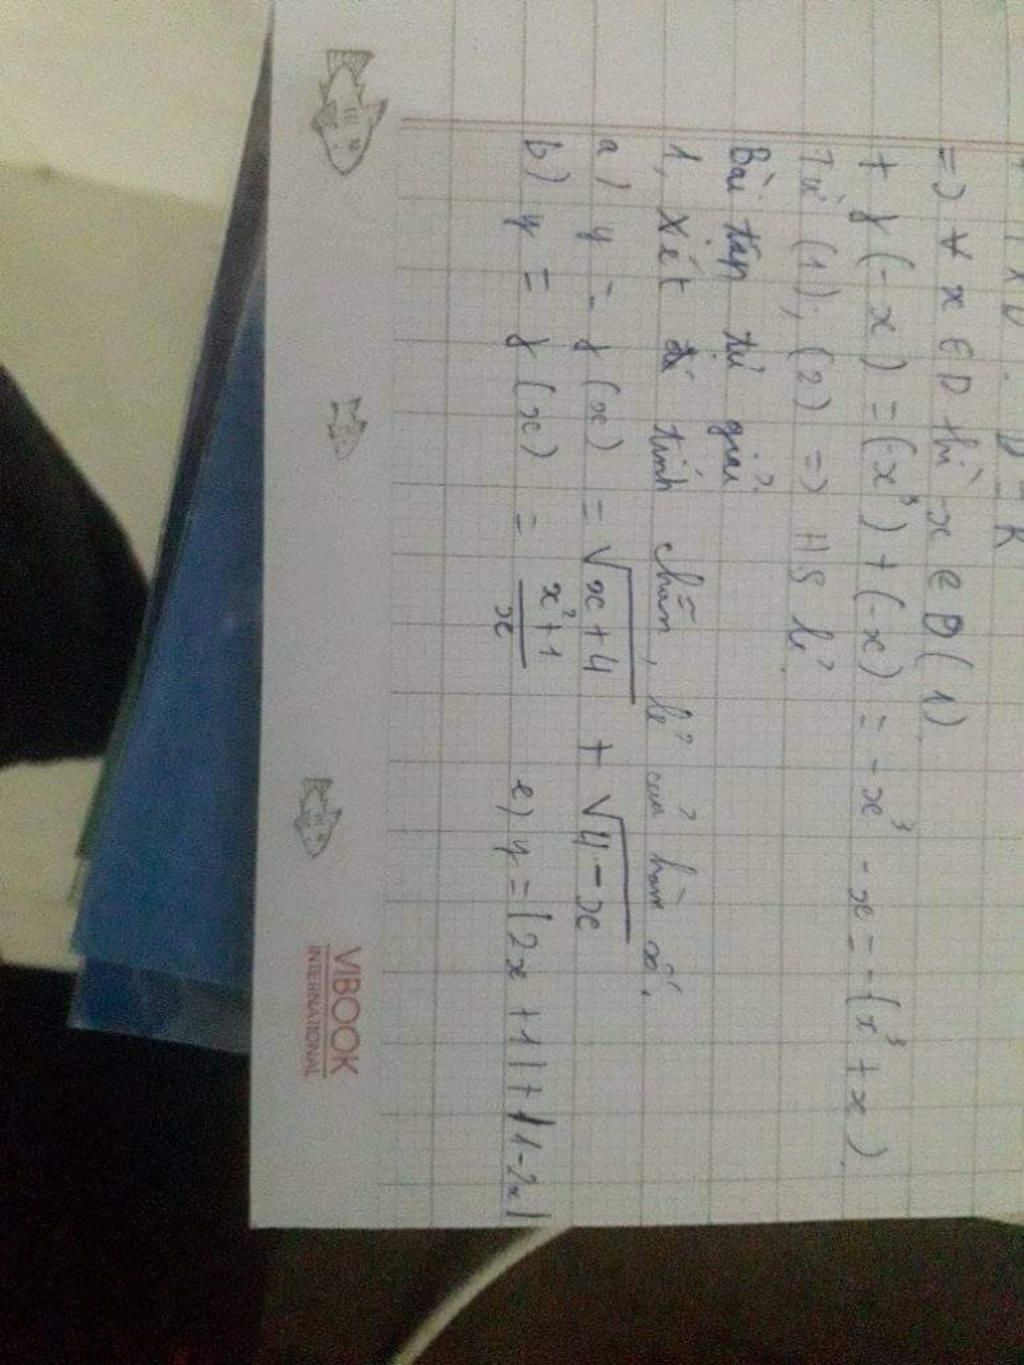 + TXD: D = R
=) ∀ x ∈ D thì -x ∈ D (1)
+ f(-x) = (-x³) + (-x) = -x³ - x = -(x³ + x)
Từ (1), (2) =) HS lẻ
Bài tập tự giải
1, Xét tính chẵn, lẻ của hàm số.
a) y = f(x) = √x+4 + √4-x
b) y = f(x) = x²+1/x e) y = |2x + 1| + |1-2x|
VIBOOK
INTERNATIONAL